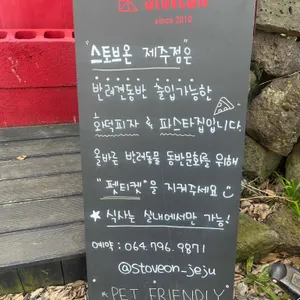 stoveon
since 2010
"스토브온 제주점"은
반려견동반 출입가능한
화덕피자 & 파스타집입니다.
올바른 반려동물 동반문화를 위해
"펫티켓"을 지켜주세요
★ 식사는 실내에서만 가능!
예약 : 064.796.9871
@stoveon_jeju
"PET FRIENDLY